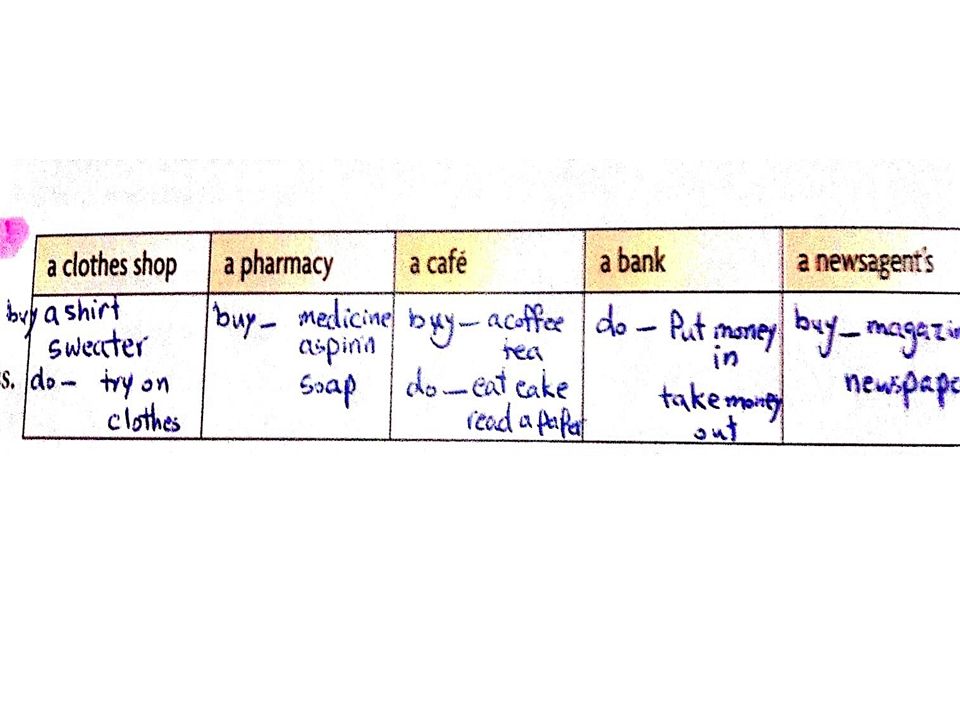 a clothes shop
a pharmacy
a café
a bank
a newsagent's
buy a shirt
sweater
do – try on
clothes
buy – medicine
aspirin
soap
buy – a coffee
tea
do – eat cake
read a paper
do – Put money
in
take money
out
buy – magazin
newspape
s.